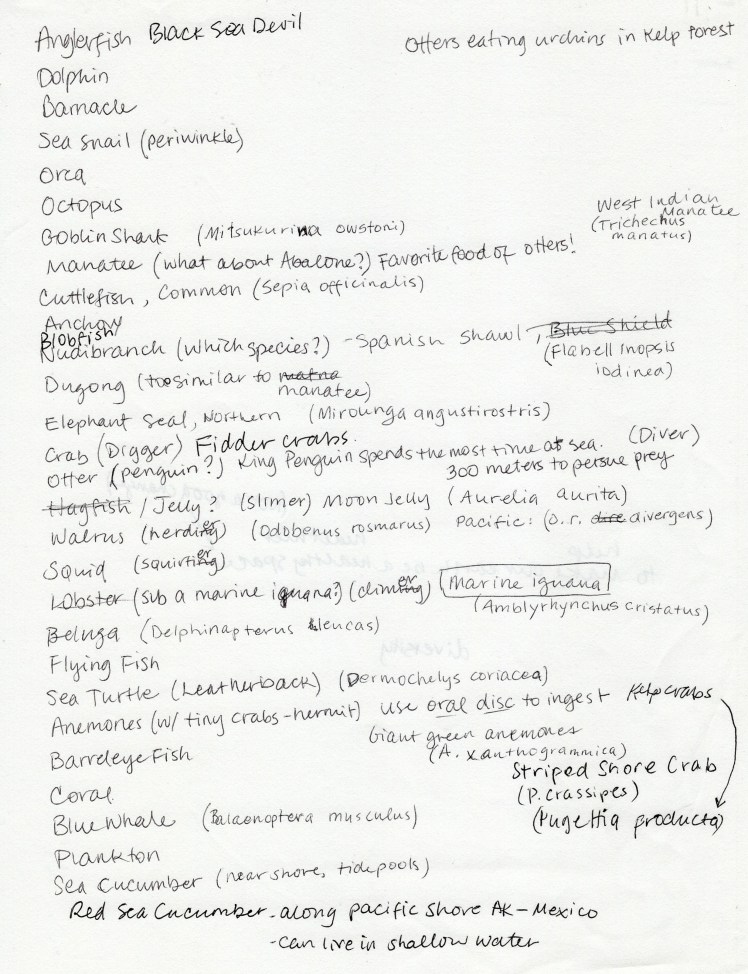 Anglerfish Black Sea Devil
Otters eating urchins in Kelp forest
Dolphin
Barnacle
Sea snail (periwinkle)
Orca
Octopus
West Indian
Manatee
(Trichechus
manatus)
Goblin Shark (Mitsukurina owstoni)
Manatee (what about Abalone?) Favorite food of otters!
Cuttlefish, Common (Sepia officinalis)
Anchovy
Blobfish
Nudibranch (which species?) - Spanish shawl, Blue Shield
(Flabellinopsis
iodinea)
Dugong (too similar to
manatee)
Elephant Seal, Northern (Mirounga angustirostris)
Crab (Digger) Fidder crabs.
Otter (penguin?) King Penguin spends the most time at sea. (Diver)
300 meters to persue prey
Hagfish / Jelly? (slimer) Moon Jelly (Aurelia aurita)
Walrus (herder) (Odobenus rosmarus) Pacific: (O.r. divergens)
Squid (squirter)
Lobster (sub a marine iguana?) (climer) Marine iguana
(Amblyrhynchus cristatus)
Beluga (Delphinapterus leucas)
Flying Fish
Sea Turtle (Leatherback) (Dermochelys coriacea)
Anemones (w/ tiny crabs - hermit) use oral disc to ingest Kelp crabs
Giant green anemones
(A. xanthogrammica)
Barreleye Fish
Striped Shore Crab
(P. crassipes)
Coral
Blue Whale (Balaenoptera musculus)
(Pugettia producta)
Plankton
Sea Cucumber (near shore, tidepools)
Red Sea Cucumber - along pacific shore AK - Mexico
- can live in shallow water